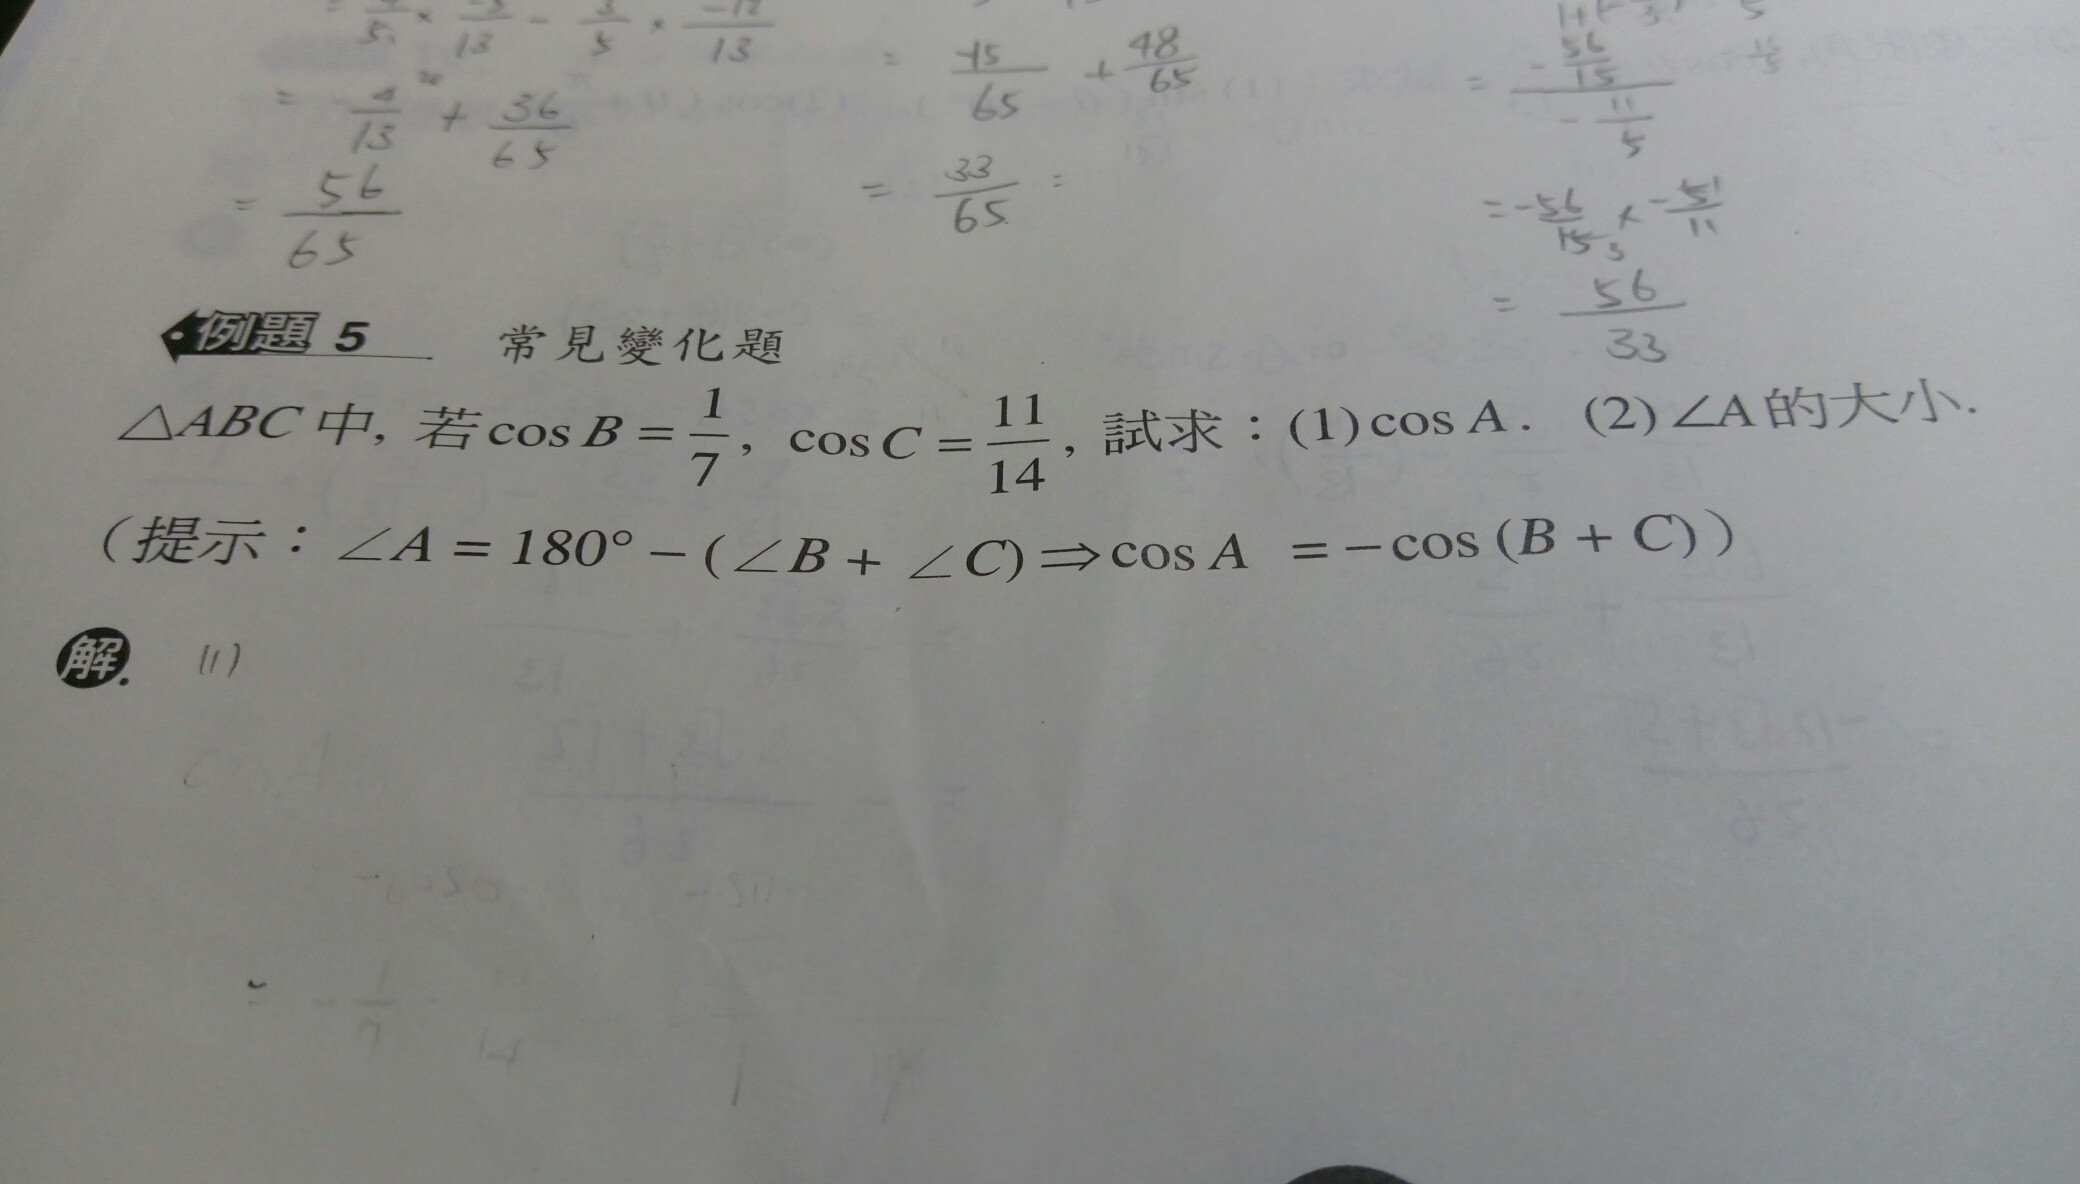 = 4/5 × -5/13 - 3/5 × -12/13
= -4/13 + 36/65
= 56/65
= -15/65 + 48/65
= 33/65 =
= (-56/15)/(-11/5)
= -56/15 × -5/11
= 56/33
例題 5 常見變化題
△ABC 中, 若 cos B = 1/7, cos C = 11/14, 試求：(1) cos A. (2) ∠A 的大小.
（提示：∠A = 180° − (∠B + ∠C) ⇒ cos A = − cos (B + C)）
解. (1)